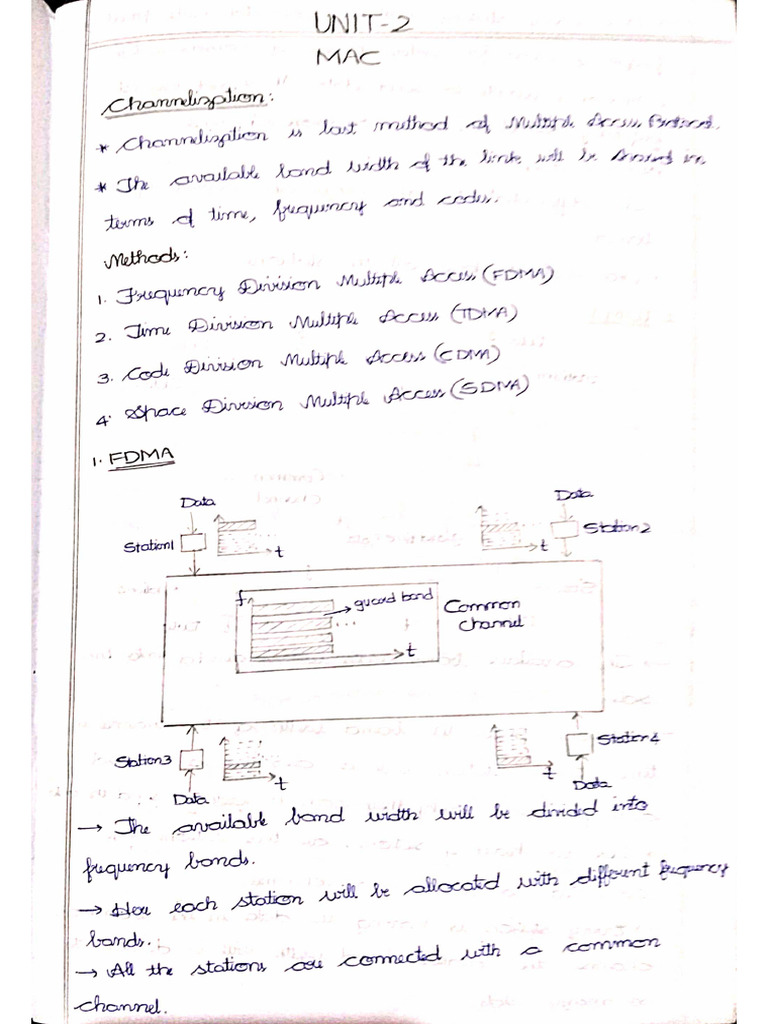 UNIT-2
MAC
Channelization:
* Channelization is last method of Multiple Access Protocol.
* The available band width of the link will be shared in
terms of time, frequency and codes.
Methods:
1. Frequency Division Multiple Access (FDMA)
2. Time Division Multiple Access (TDMA)
3. Code Division Multiple Access (CDMA)
4. Space Division Multiple Access (SDMA)
1. FDMA
Data
Data
Station1
t
t
Station2
f
guard band
Common
channel
t
Station3
t
t
Station4
Data
Data
→ The available band width will be divided into
frequency bands.
→ Here each station will be allocated with different frequency
bands.
→ All the stations are connected with a common
channel.